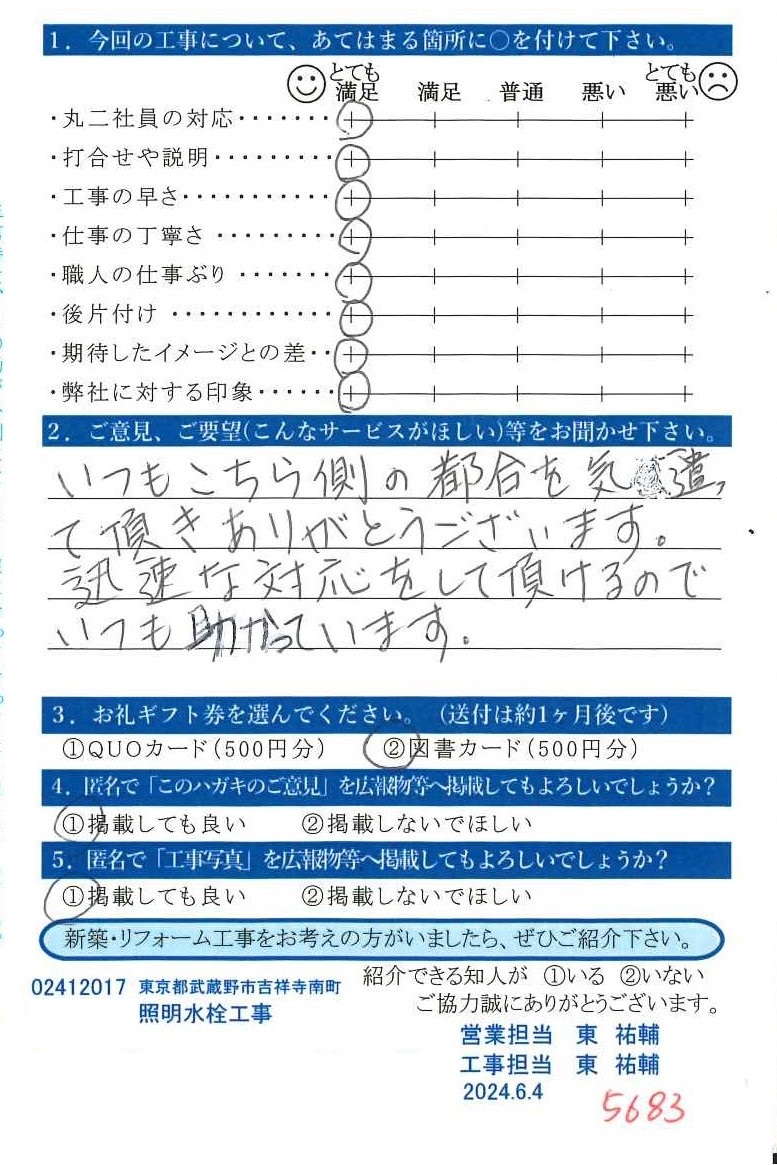 1．今回の工事について、あてはまる箇所に○を付けて下さい。
とても満足 満足 普通 悪い とても悪い
・丸二社員の対応・・・・・・・
・打合せや説明・・・・・・・・・
・工事の早さ・・・・・・・・・・・
・仕事の丁寧さ ・・・・・・・・・
・職人の仕事ぶり ・・・・・・・
・後片付け ・・・・・・・・・・・・
・期待したイメージとの差・・
・弊社に対する印象・・・・・・
2．ご意見、ご要望(こんなサービスがほしい)等をお聞かせ下さい。
いつもこちら側の都合を気遣っ
て頂きありがとうございます。
迅速な対応をして頂けるので
いつも助かっています。
3．お礼ギフト券を選んでください。（送付は約1ヶ月後です）
①QUOカード（500円分） ②図書カード（500円分）
4．匿名で「このハガキのご意見」を広報物等へ掲載してもよろしいでしょうか？
①掲載しても良い ②掲載しないでほしい
5．匿名で「工事写真」を広報物等へ掲載してもよろしいでしょうか？
①掲載しても良い ②掲載しないでほしい
新築・リフォーム工事をお考えの方がいましたら、ぜひご紹介下さい。
紹介できる知人が ①いる ②いない
02412017 東京都武蔵野市吉祥寺南町
照明水栓工事
ご協力誠にありがとうございます。
営業担当 東 祐輔
工事担当 東 祐輔
2024.6.4
5683